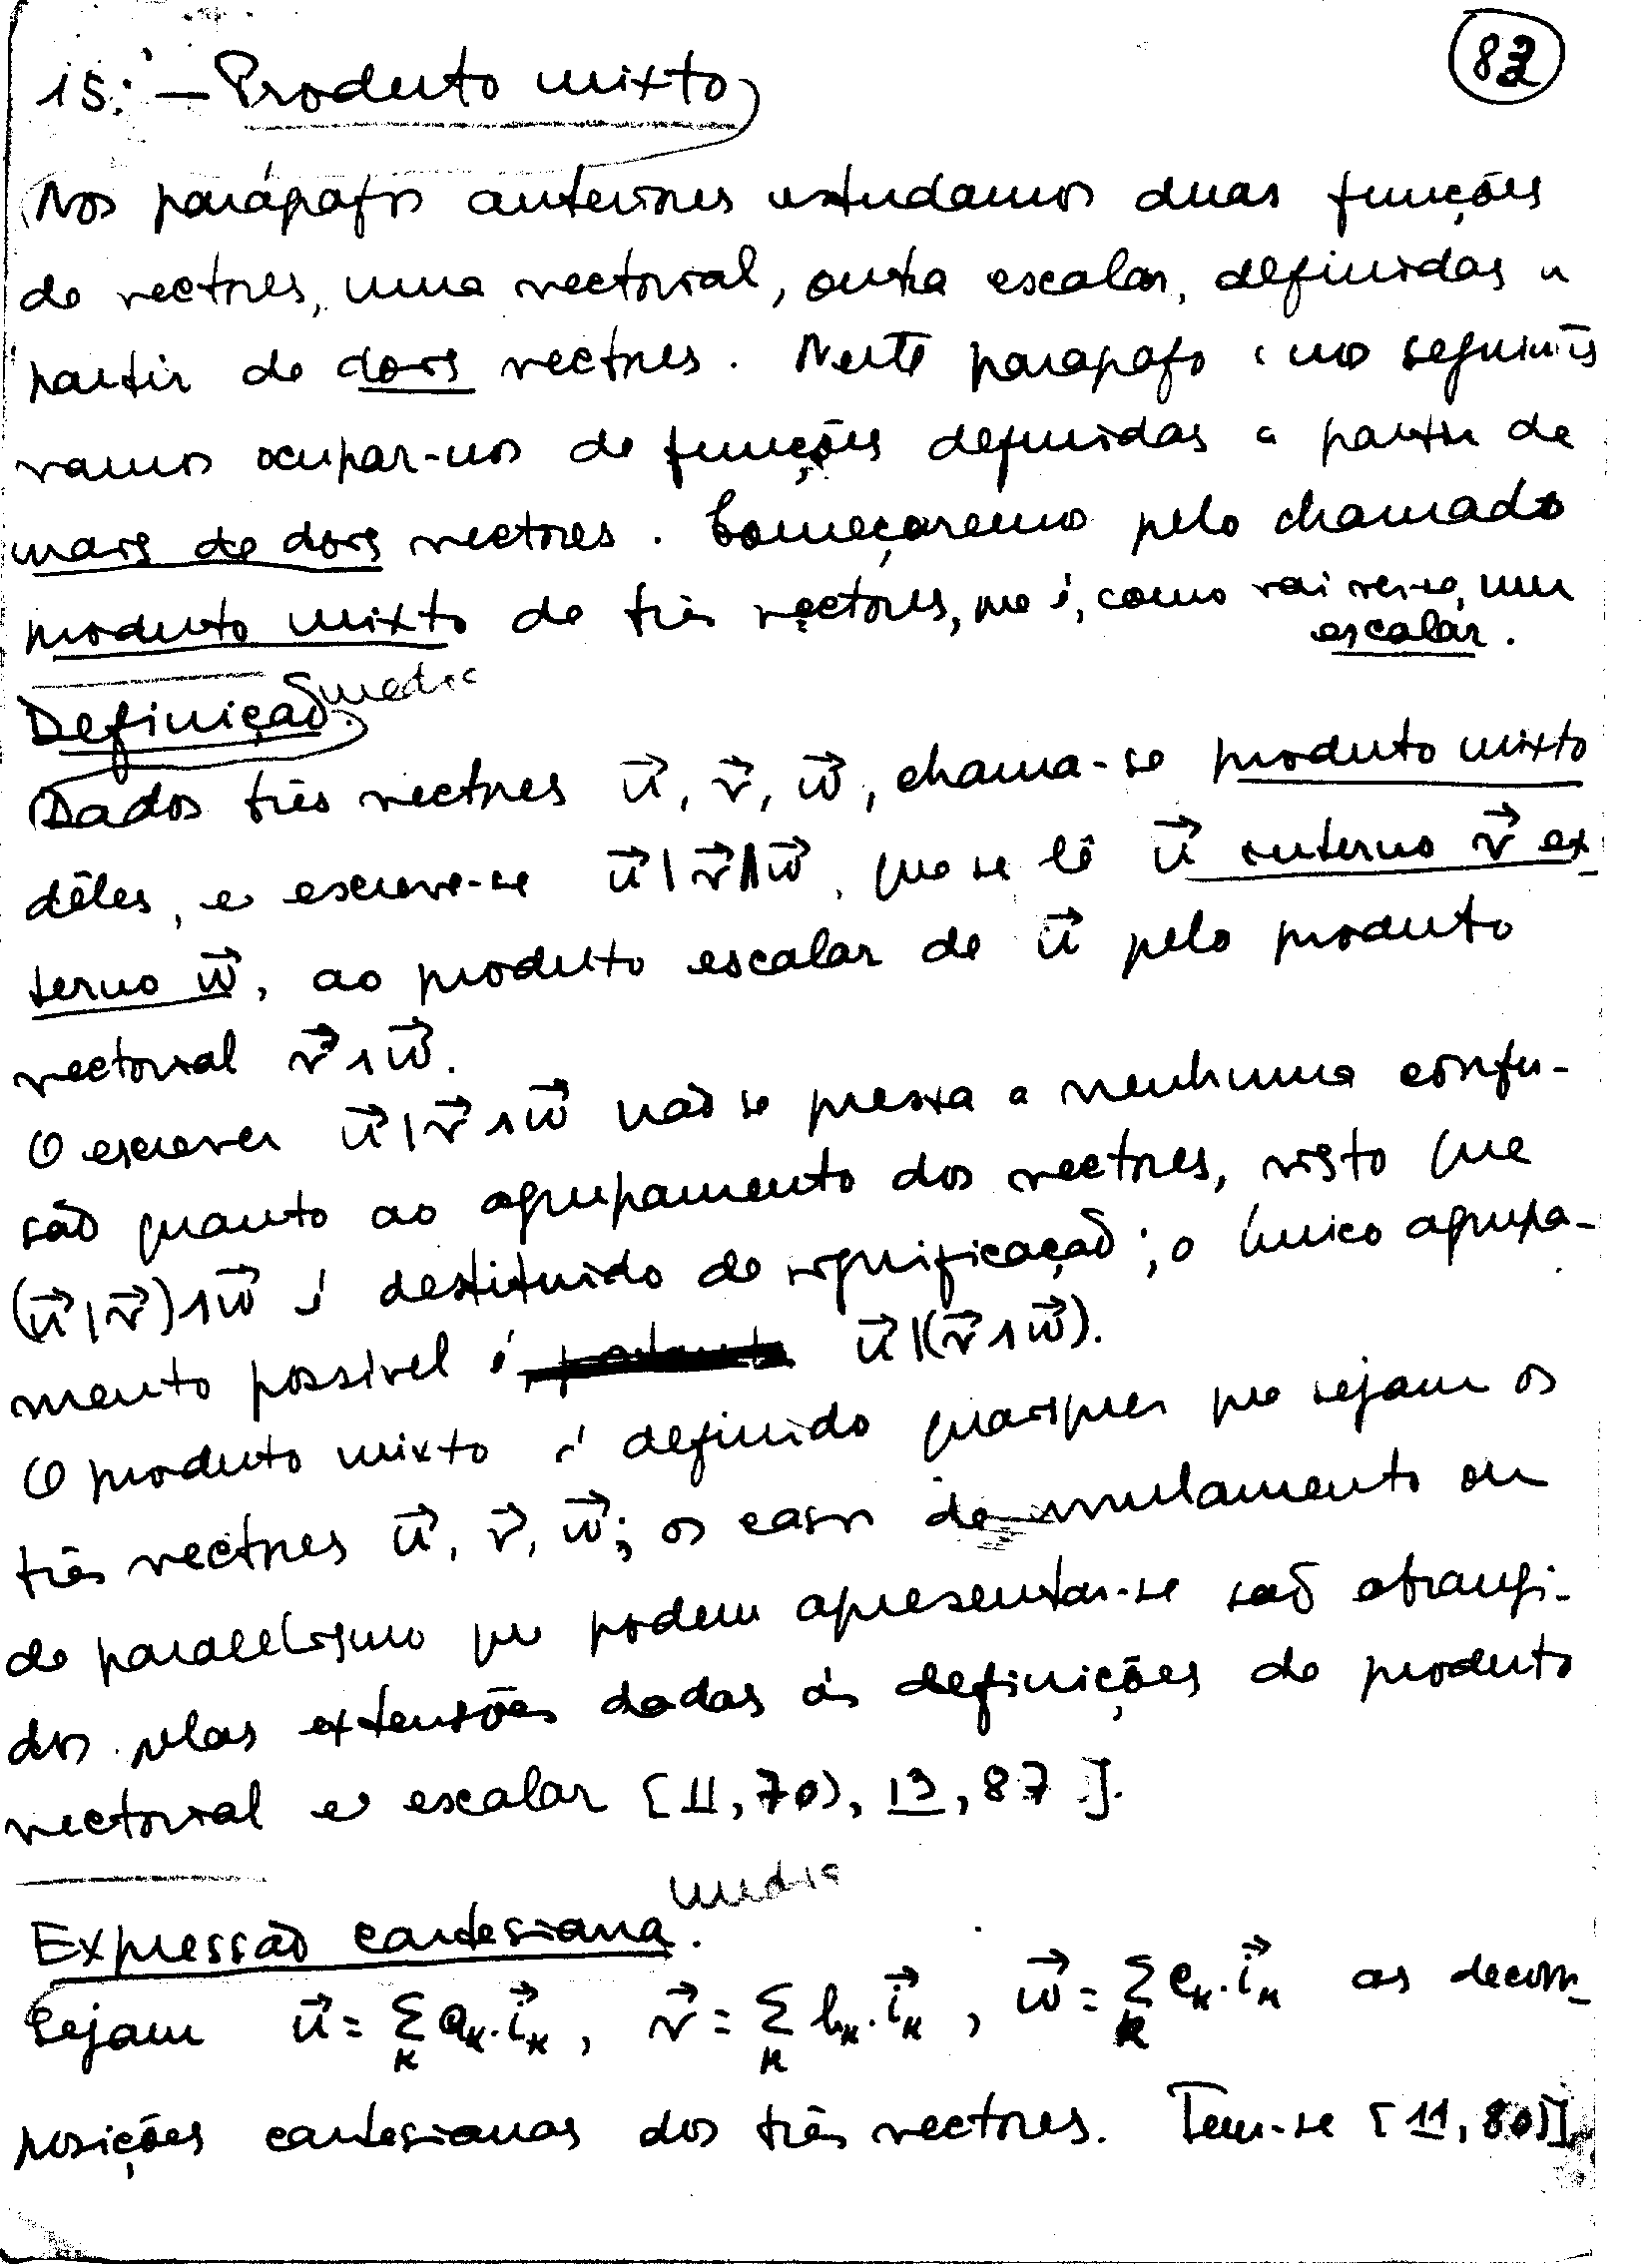 83
15.' — Produto mixto
Nos parágrafos anteriores estudamos duas funções
de vectores, uma vectorial, outra escalar, definidas a
partir de dois vectores. Neste parágrafo e no seguintes
vamos ocupar-nos de funções definidas a partir de
mais de dois vectores. Começaremos pelo chamado
produto mixto de três vectores, que é, como vai ver-se, um
escalar.
Definição. media
Dados três vectores u⃗, v⃗, w⃗, chama-se produto mixto
dêles, e escreve-se u⃗|v⃗∧w⃗, que se lê u⃗ interno v⃗ ex-
terno w⃗, ao produto escalar de u⃗ pelo produto
vectorial v⃗∧w⃗.
O escrever u⃗|v⃗∧w⃗ não se presta a nenhuma confu-
são quanto ao agrupamento dos vectores, visto que
(u⃗|v⃗)∧w⃗ é destituido de significação; o único agrupa-
mento possível é u⃗|(v⃗∧w⃗).
O produto mixto é definido quaisquer que sejam os
três vectores u⃗, v⃗, w⃗; os casos de anulamento ou
de paralelismo que podem apresentar-se são abrangi-
dos pelas extensões dadas ás definições de produto
vectorial e escalar [11, 70), 13, 87].
Expressão cartesiana. media
Sejam u⃗ = Σₖ aₖ.i⃗ₖ, v⃗ = Σₖ bₖ.i⃗ₖ, w⃗ = Σₖ cₖ.i⃗ₖ as decom-
posições cartesianas dos três vectores. Tem-se [11, 80)]